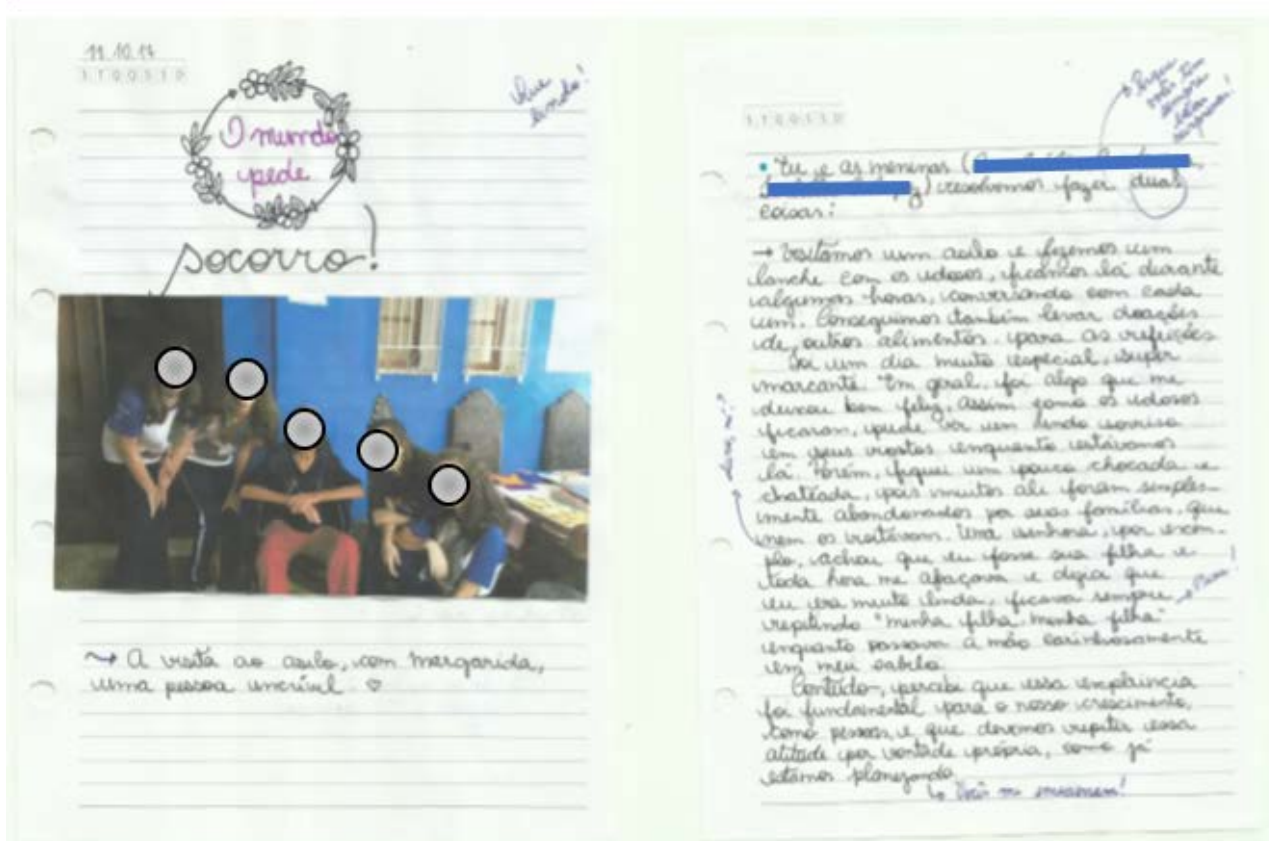 11.10.17
STQQSSD
Que lindo!
O mundo
pede
socorro!
~> A visita ao asilo, com Margarida,
uma pessoa incrível ♡
STQQSSD
• Eu e as meninas (
) resolvemos fazer duas
coisas:
→ Visitamos um asilo e fizemos um
lanche com os idosos, ficamos lá durante
algumas horas, conversando com cada
um. Conseguimos também levar doações
de outros alimentos para as refeições
Foi um dia muito especial, super
marcante. Em geral, foi algo que me
deixou bem feliz, assim como os idosos
ficaram, pude ver um lindo sorriso
em seus rostos enquanto estávamos
lá. Porém, fiquei um pouco chocada e
chateada, pois muitos ali foram simples-
mente abandonados por suas famílias, que
nem os visitavam. Uma senhora, por exem-
plo, achou que eu fosse sua filha e
toda hora me afagava e dizia que
eu era muito linda, ficava sempre
repetindo "minha filha, minha filha"
enquanto passava a mão carinhosamente
em meu cabelo.
Contudo, percebi que essa experiência
foi fundamental para o nosso crescimento,
como pessoas, e que devemos repetir essa
atitude por vontade própria, como já
estamos planejando.
↳ Vocês me